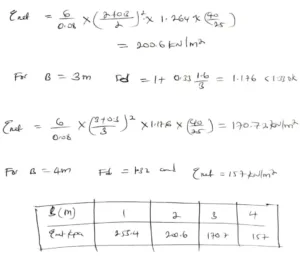 qnet = 6/0.08 × (2+0.3/2)² × 1.264 × (40/25)
= 200.6 kN/m²
For B = 3m Fd = 1+ 0.33 1.6/3 = 1.176 < 1.33 ok
qnet = 6/0.08 × (3+0.3/3)² × 1.176 × (40/25) = 170.72 kN/m²
For B = 4m Fd = 1.132 and qnet = 157 kN/m²
B (m) 1 2 3 4
qnet kpa 253.4 200.6 170.7 157